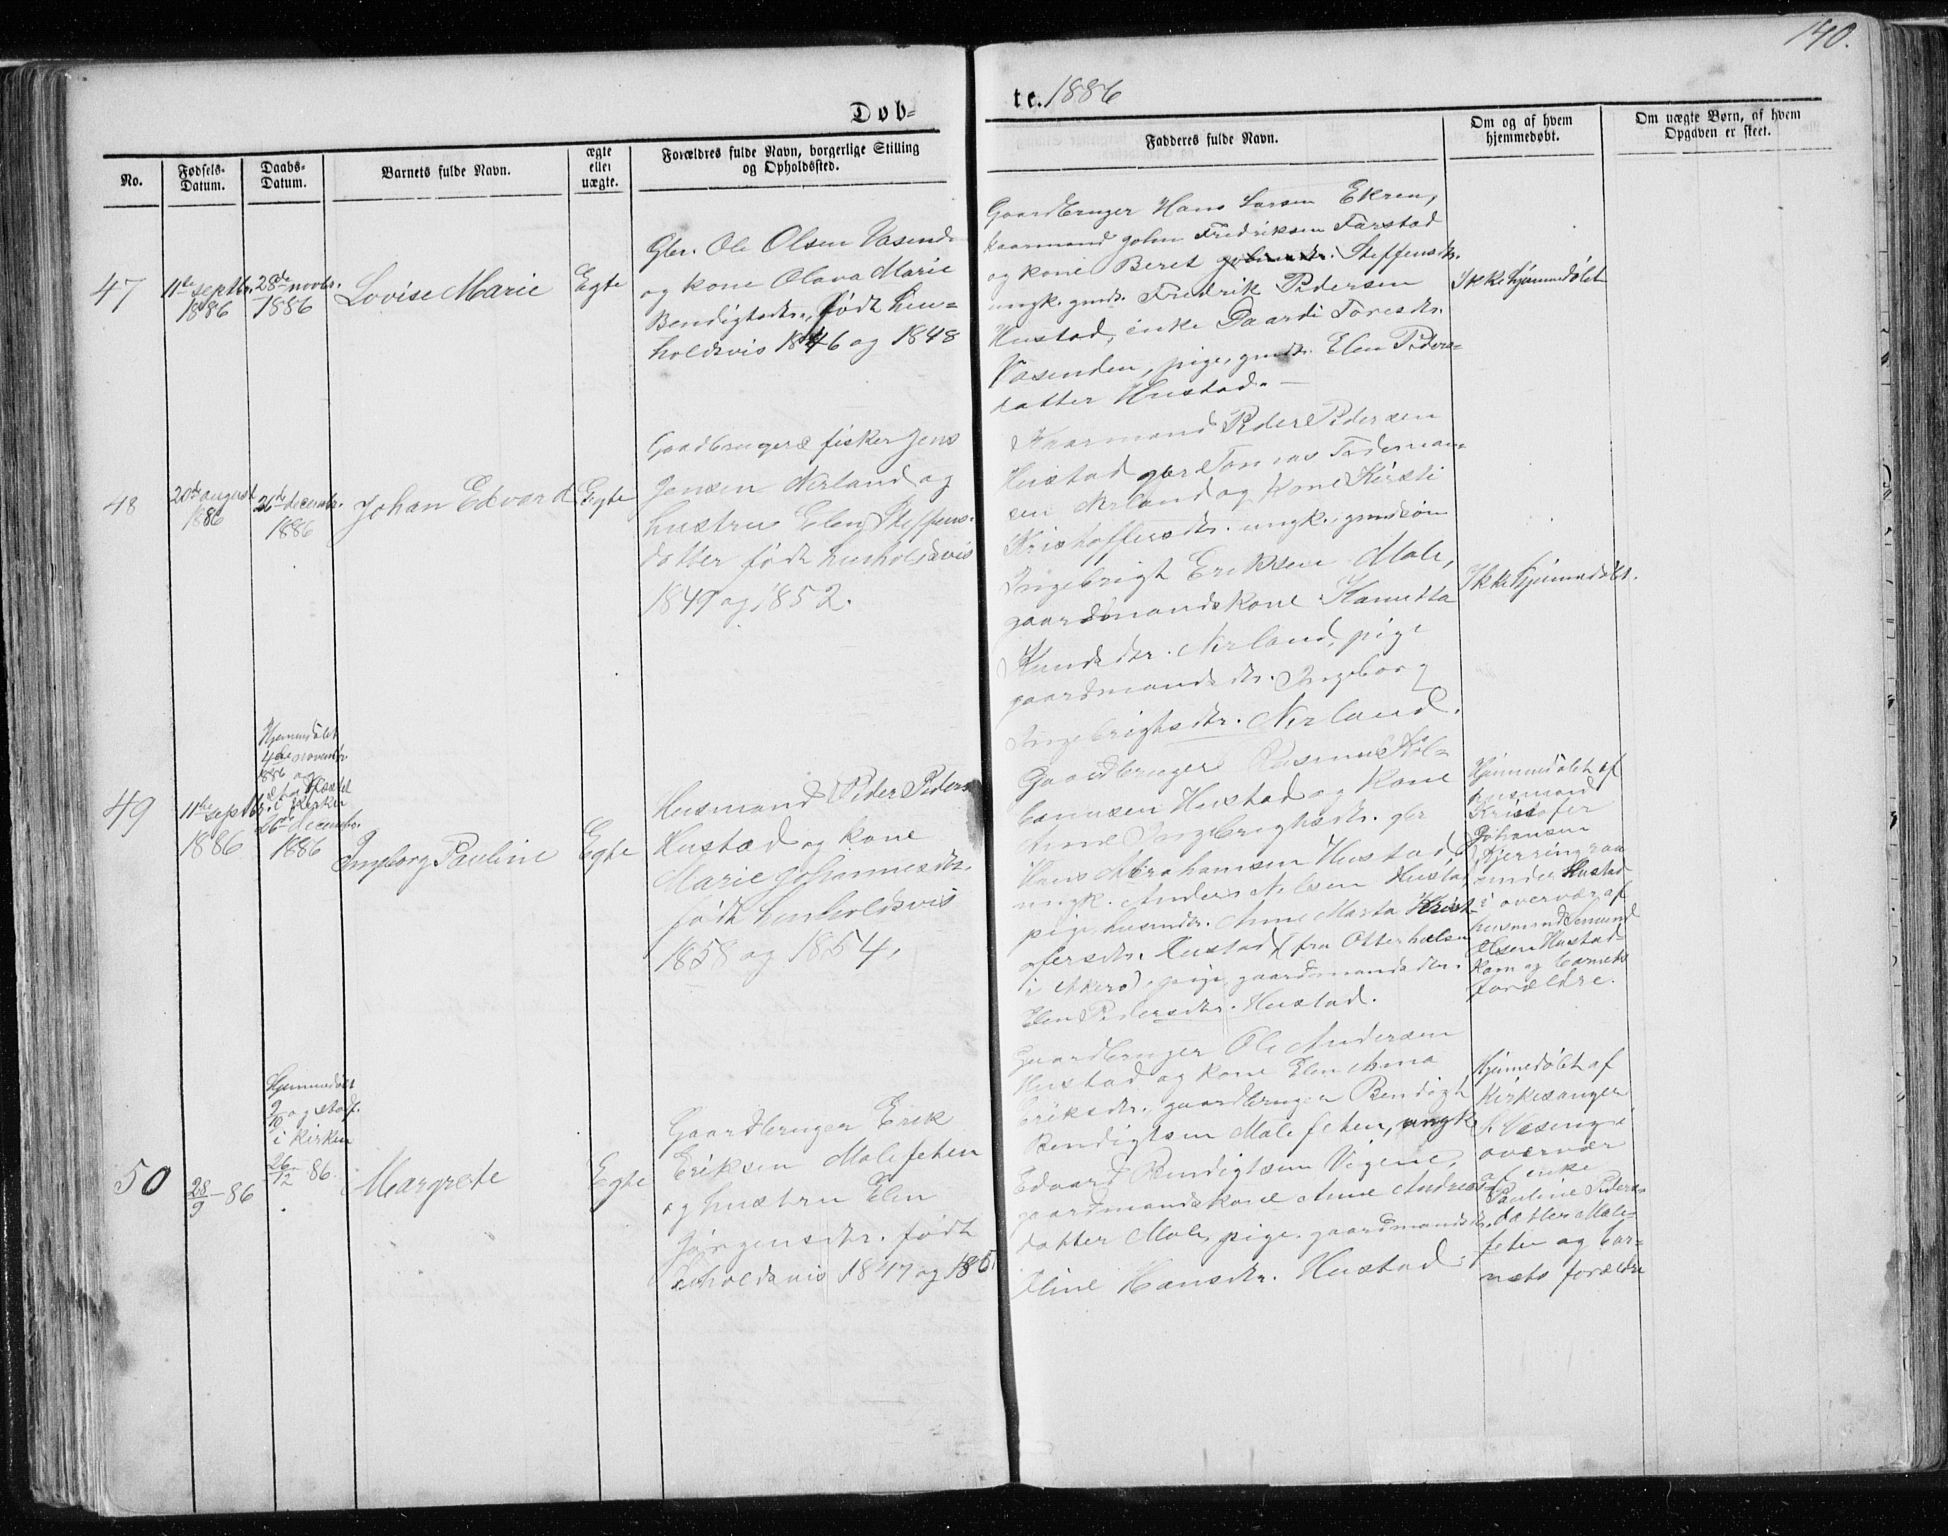 140.
Døb-
te. 1886
No.
Fødsels-
Datum.
Daabs-
Datum.
Barnets fulde Navn.
ægte
eller
uægte.
Forældres fulde Navn, borgerlige Stilling
og Opholdssted.
Fadderes fulde Navn.
Om og af hvem
hjemmedøbt.
Om uægte Børn, af hvem
Opgaven er skeet.
47
11te septbr.
1886
28de novbr.
1886
Lovise Marie
Egte
Gbr. Ole Olsen Vasend
og kone Olava Marie
Bendigtsdtr., født hen-
holdsvis 1846 og 1848
Gaardbruger Hans Larsen Ekren,
kaarmand John Fredriksen Farstad
og kone Beret Steffensdr.
ungk. gmds. Fredrik Pedersen
Hustad, enke Gaardi Toresdr.
Vasenden, pige, gmdtr. Elen Peders-
datter Hustad.
Ikke hjemmedøbt
48
20de august
1886
26de decembr.
1886
Johan Edvard
Egte
Gaadbruger & fisker Jens
Jensen Nerland og
hustru Elen Steffens-
datter født henholdsvis
1849 og 1852.
Kaarmand Peder Pedersen
Hustad gbr Tomas Tideman-
sen Nerland og kone Kirsti
Kristoffersdtr. ungk., gmdsøn
Ingebrigt Eriksen Male,
gaardmandskone Kanutta
Knudsdtr. Nerland, pige
gaardmandsdtr. Ingeborg
Ingebrigtsdtr. Nerland.
Ikke hjemmedøbt.
49
11te septbr.
1886
Hjemmedøbt
4de novembr.
1886 og
stadfæstet
i kirken
26de decembr.
1886
Ingborg Pauline
Egte
Husmand Peder Peders
Hustad og kone
Marie Johannesdtr.
født henholdsvis
1858 og 1854.
Gaardbruger Rasmus Kol-
beinsen Hustad og kone
Anne Ingebrigtsdtr. gbr
Hans Abrahamsen Hustad
ungk. Anders Nilsen Hustad
pige, husmdtr. Anne Marta Krist-
ofersdtr. Hustad (fra Otterholsen
i Akerø), pige gaardmandsdtr.
Elen Pedersdtr. Hustad.
Hjemmedøbt af
husmand
Kristofer
Johansen
Kjerringraa
under Hustad
i overvær af
husmand
Olsen Hustad-
kam og barnets
forældre.
50
28/9-86
Hjemmedøbt
9/10 og stadf.
i kirken
26/12-86.
Margrete
Egte
Gaardbruger Erik
Eriksen Malefeten
og hustru Elen
Jørgensdtr. født
holdsvis 1847 og 185
Gaardbruger Ole Andersen
Hustad og kone Elen Anna
Eriksdtr., gaardbruger Bendigt
Bendigtsen Malefeten, ungk
Edvard Bendigtsen Vigene,
gaardmandskone Anne Andreas-
datter Male, pige, gaardmandsdtr.
Eline Hansdtr. Hustad.
Hjemmedøbt af
Kirkesanger
Vaseng i
overvær
af enke
Pauline Peders-
datter Male-
feten og bar-
nets forældre